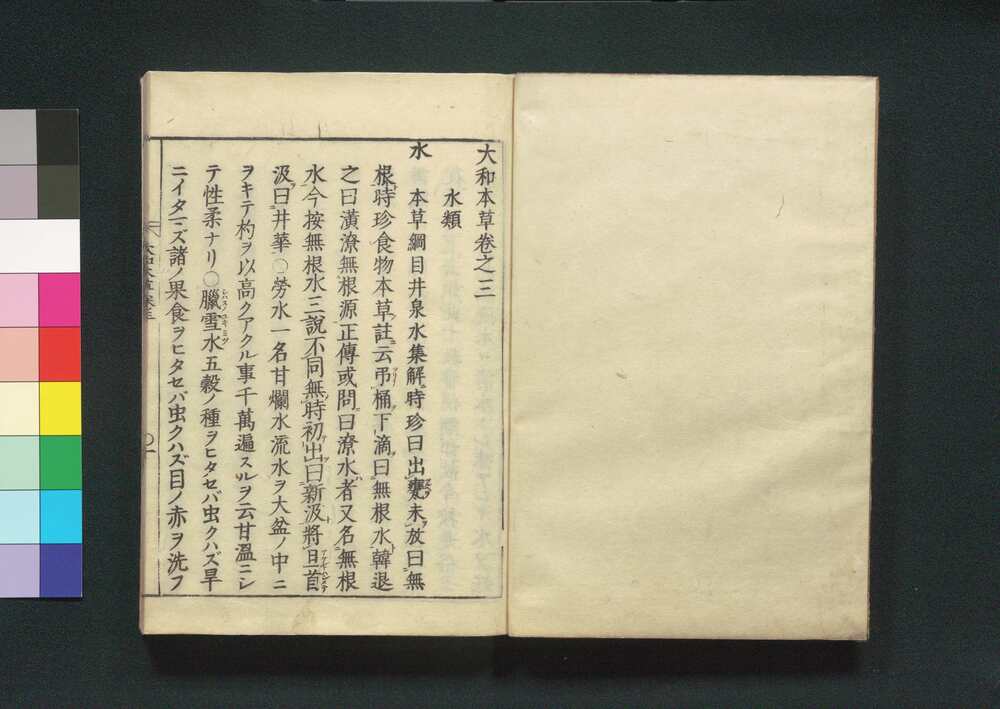 大和本草卷之三
水類
水
本草綱目井泉水集解時珍曰出甕未放曰無
根時珍食物本草註云吊桶下滴曰無根水韓退
之曰潢潦無根源正傳或問曰潦水者又名無根
水今按無根水三說不同無時初出曰新汲將旦首
汲曰井華〇勞水一名甘爛水流水ヲ大盆ノ中ニ
ヲキテ杓ヲ以高クアクル事千萬遍スルヲ云甘溫ニシ
テ性柔ナリ〇臘雪水五穀ノ種ヲヒタセバ虫クハズ旱
ニイタマズ諸ノ果食ヲヒタセバ虫クハズ目ノ赤ヲ洗フ